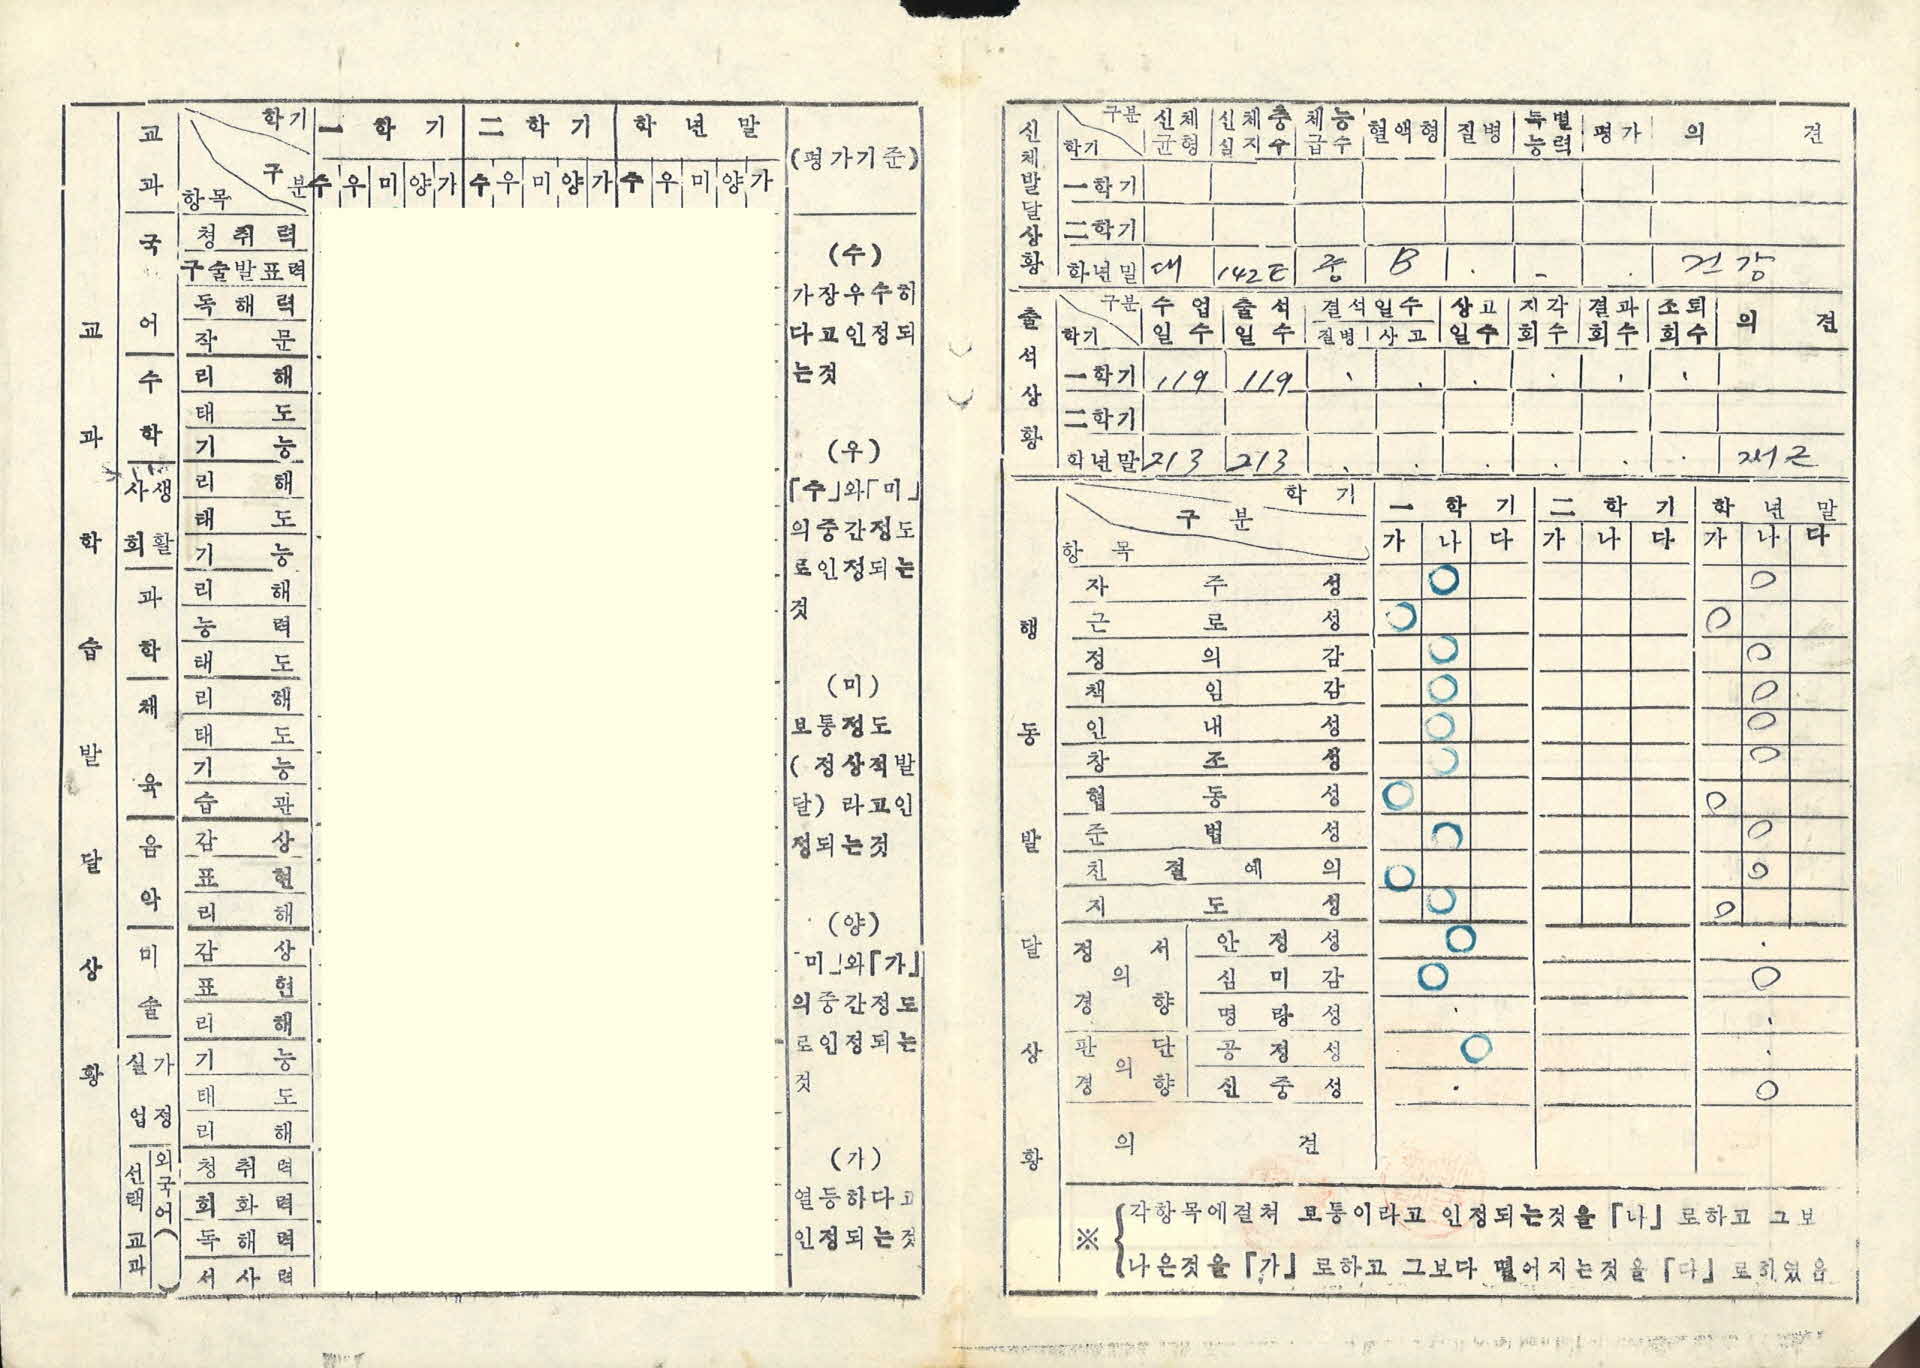 교과학습발달상황
교과 학기 구분 항목 一학기 二학기 학년말 (평가기준)
수 우 미 양 가 수 우 미 양 가 수 우 미 양 가
국어
청취력
구술발표력
독해력
작문
수학
리해
태도
기능
사회생활
리해
태도
기능
과학
리해
능력
태도
체육
리해
태도
기능
습관
음악
감상
표현
리해
미술
감상
표현
리해
실업가정
기능
태도
리해
선택교과 외국어( )
청취력
회화력
독해력
서사력
(수)
가장우수히
다고인정되
는것
(우)
「수」와「미」
의중간정도
로인정되는
것
(미)
보통정도
(정상적발
달)라고인
정되는것
(양)
「미」와「가」
의중간정도
로인정되는
것
(가)
열등하다고
인정되는것
신체발달상황
구분 학기 신체균형 신체충실지수 체능급수 혈액형 질병 특별능력 평가 의견
一학기
二학기
학년말 대 중 B 건강
출석상황
구분 학기 수업일수 출석일수 결석일수 질병 사고 상고일수 지각회수 결과회수 조퇴회수 의견
一학기 119 119
二학기
학년말 213 213 개근
행동발달상황
학기 구분 항목 一학기 二학기 학년말
가 나 다 가 나 다 가 나 다
자주성 ○ ○
근로성 ○ ○
정의감 ○ ○
책임감 ○ ○
인내성 ○ ○
창조성 ○ ○
협동성 ○ ○
준법성 ○ ○
친절예의 ○ ○
지도성 ○ ○
정서의경향
안정성 ○
심미감 ○ ○
명랑성
판단의경향
공정성 ○
신중성 ○
의견
※ 각항목에걸쳐 보통이라고 인정되는것을「나」로하고 그보
나은것을「가」로하고 그보다 떨어지는것을「다」로히였음